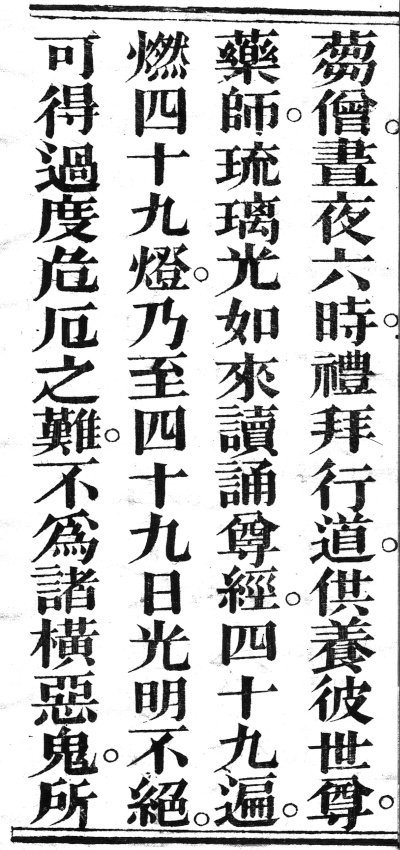 蒭僧。晝夜六時。禮拜行道。供養彼世尊。
藥師。琉璃光如來讀誦尊經。四十九遍。
燃四十九燈。乃至四十九日光明不絕。
可得過度危厄之難。不為諸橫惡鬼。所